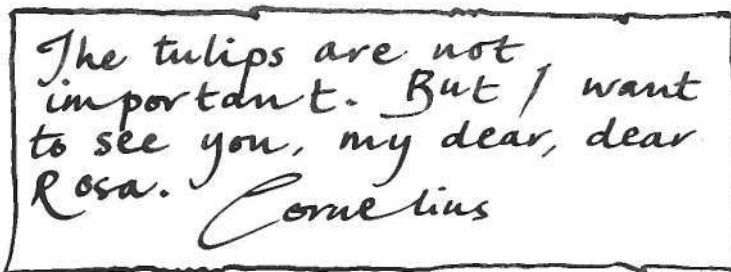 The tulips are not
important. But I want
to see you, my dear, dear
Rosa.
Cornelius